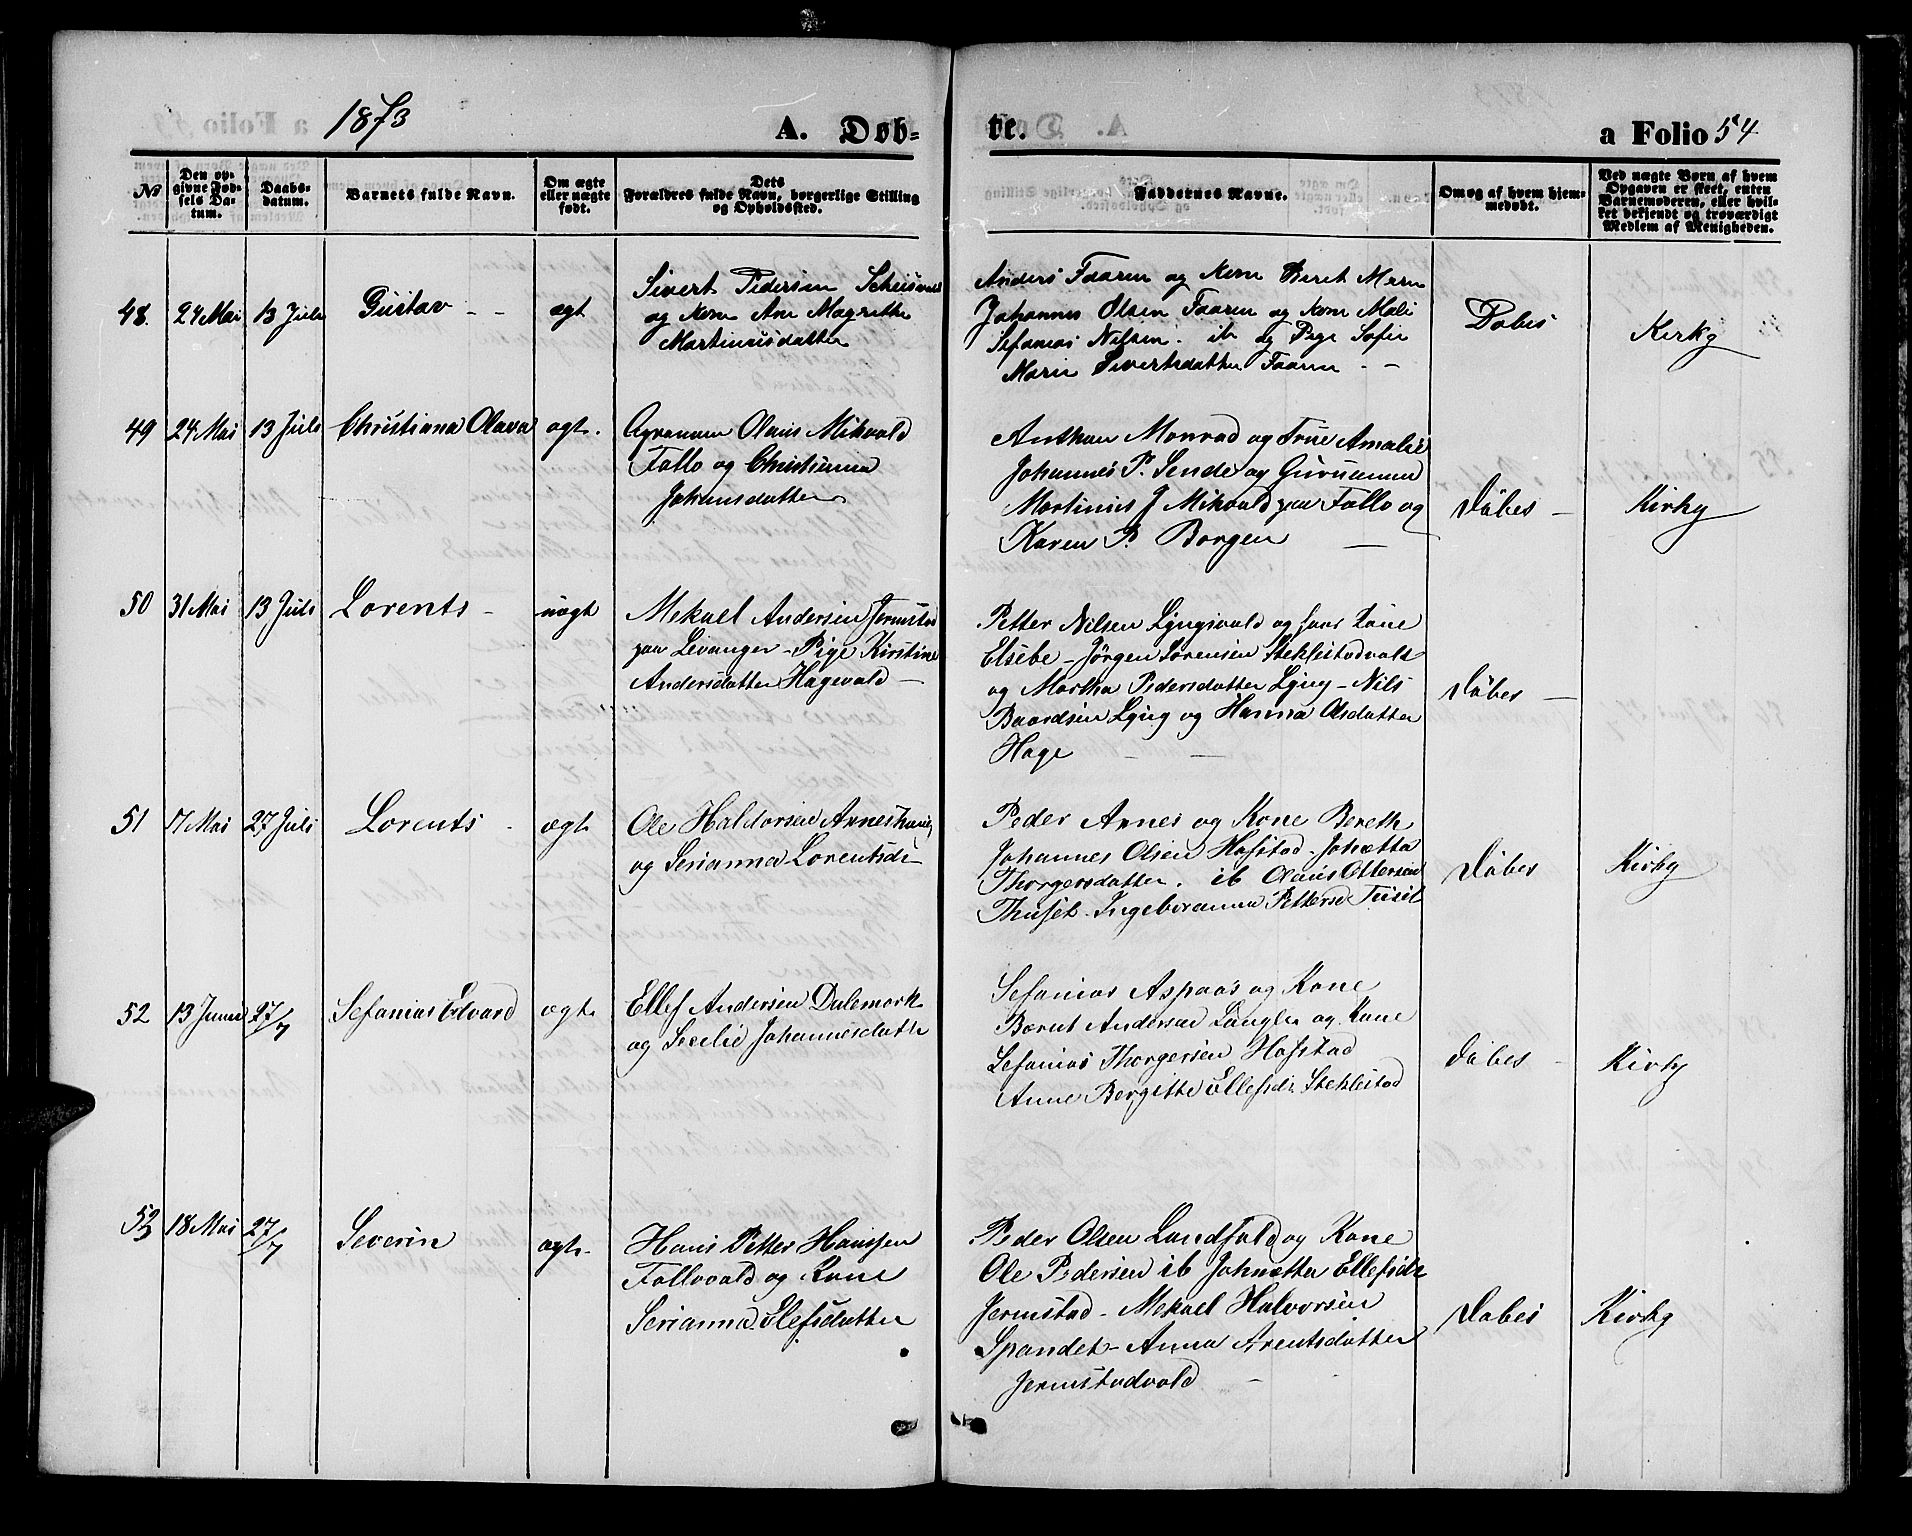 1873
A. Døb-
te.
a Folio 54
No
Den op-
givne Fød-
sels Da-
tum.
Daabs-
datum.
Barnets fulde Navn.
Om ægte
eller uægte
født.
Dets
Forældres fulde Navn, borgerlige Stilling
og Opholdssted.
Faddernes Navne.
Om og af hvem hjem-
medøbt.
Ved uægte Børn af hvem
Opgaven er skeet, enten
Barnemoderen, eller hvil-
ket bekjendt og troværdigt
Medlem af Menigheden.
48. 24 Mai 13 Juli Gustav - - ægt
Sivert Pedersen
og Kone Ane Magrethe
Martinusdatter
Anders Faaren og Kone Beret Maria
Johannes Olsen Faaren og Kone Mali
Sefanias Nilsen. ib og Pige Sofie
Marie Sivertsdatter Faaren - -
Døbes
Kirky
49 24 Mai 13 Juli Christiana Olava ægt.
Olaus Mikvold
Fallo og Christianna
Johansdatter
Anthon Monrad og Frue Amalie
Johannes P. Sende og Guruanna
Martinus J Mikvold paa Fallo og
Karen P. Borgen -
Døbes -
Kirky
50 31 Mai 13 Juli Lorents - uægt
Mekael Andersen Jermstad
paa Levanger - Pige Kirstine
Andersdatter Hagevald -
Petter Nilsen Lyngsvald og hans Kone
Elsebe - Jörgen Sörensen Stiklestadvald
og Martha Pedersdatter Lyng - Nils
Baardsen Lyng og Hanna Olsdatter
Hage - -
Døbes -
51 17 Mai 27 Juli Lorents - ægt
Ole Haldorsen
og Serianna Lorentsd-
Peder Arnes og Kone Bereth
Johannes Olsen Hofstad - Johætta
Thorgersdatter. ib Olaus Ottersen
Thuset - Ingeboranna Petters Tuset
Døbes
Kirky
52 13 Juni 27/7 Sefanias Edvard ægt.
Ellef Andersen Dalemark
og Secilie Johannesdatter
Sefanias Aspaas og Kone
Bernt Andersen Længle og Kone
Sefanias Thorgersen Hofstad
Anne Bergitte Ellefsd: Stiklestad
Døbes -
Kirky
53 18 Mai 27/7 Severin ægt-
Hans Petter Hanssen
Fallovald og Kone
Serianna Elefsdatter
Peder Olsen Landfald og Kone
Ole Pedersen ib Johnætta Ellefsdr
Jermstad - Mekael Halvorsen
Spandet - Anna Arentsdatter
Jermstadvald -
Døbes
Kirky